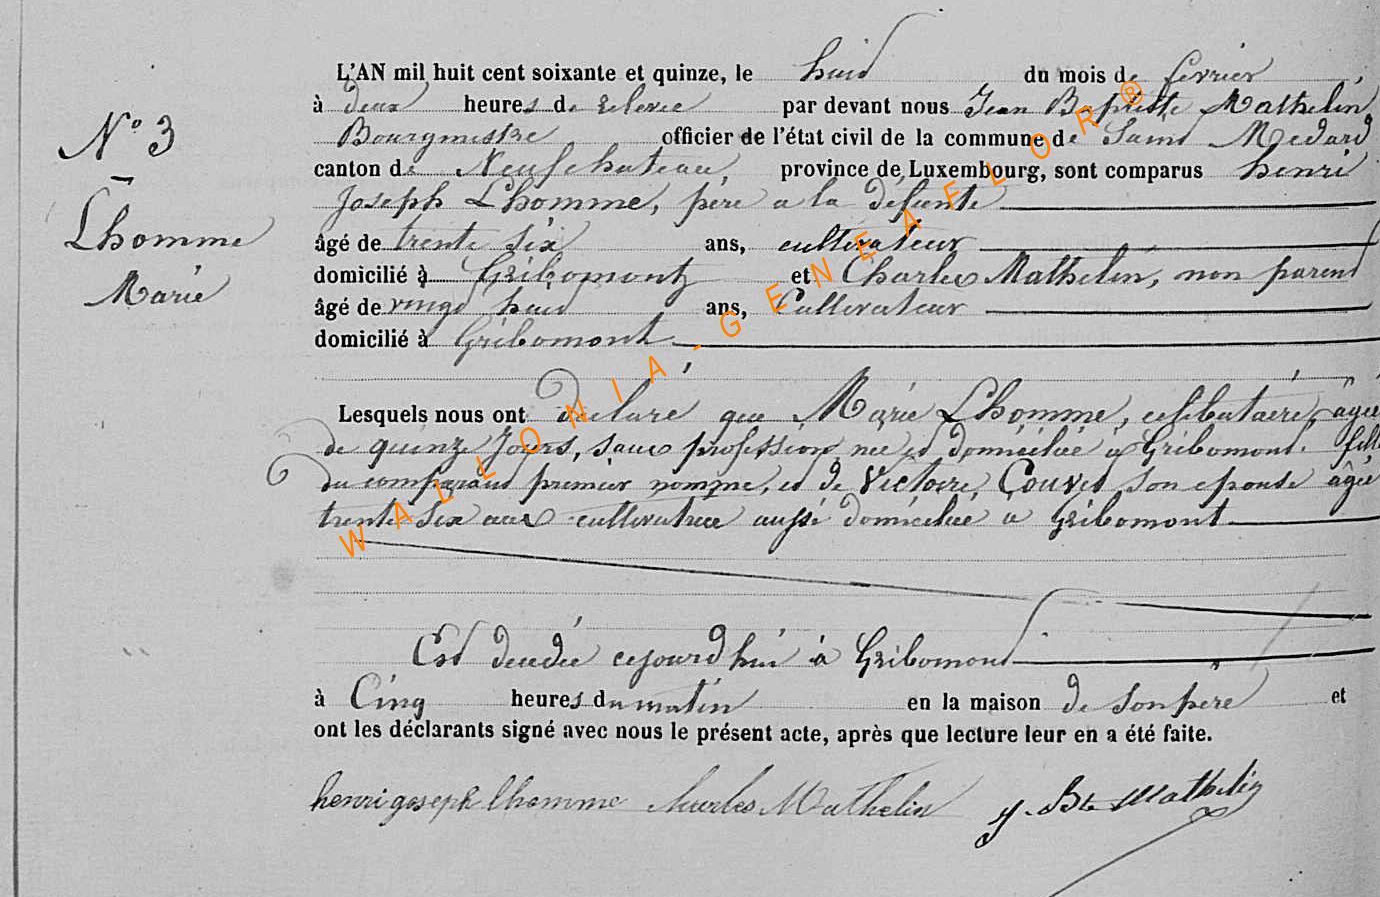 L'AN mil huit cent soixante et quinze, le huid du mois de fevrier,
à deux heures de relevée par devant nous Jean Baptiste Mathelin
Bourgmestre officier de l'état civil de la commune de Saint Medard
canton de Neufchateau, province de Luxembourg, sont comparus henri
N° 3
Joseph Lhomme, père a la défunte
Lhomme
âgé de trente six ans, cultivateur
domicilié à Gribomont et Charles Mathelin, non parent
Marie
âgé de vingt huid ans, Cultivateur
domicilié à Gribomont
Lesquels nous ont declaré que Marie Lhomme, celibataire, âgée
de quinze jours, sans profession née et domiciliée à Gribomont, fille
du comparant premier nommé, et de Victoire, son epouse âgée
trente six ans cultivatrice aussi domiciliée a Gribomont
Est decedée cejourd'hui à Gribomont
à Cinq heures du matin en la maison de son père et
ont les déclarants signé avec nous le présent acte, après que lecture leur en a été faite.
henri joseph lhomme Charles Mathelin J. Bte Mathelin
WALLONIA-GENEAFLOR®